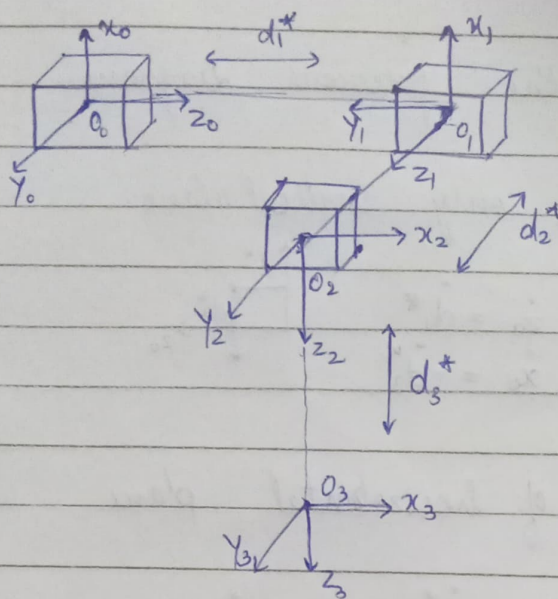 x₀ d₁* x₁
O₀ z₀ y₁ O₁
y₀ z₁
x₂ d₂*
O₂
y₂ z₂
d₃*
O₃ x₃
y₃ z₃